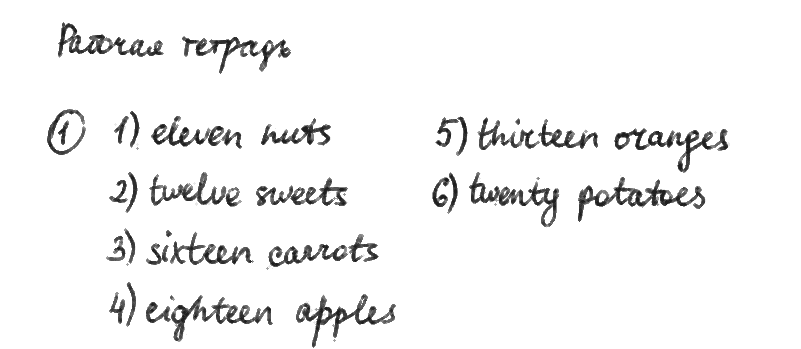 Рабочая тетрадь
① 1) eleven nuts
2) twelve sweets
3) sixteen carrots
4) eighteen apples
5) thirteen oranges
6) twenty potatoes